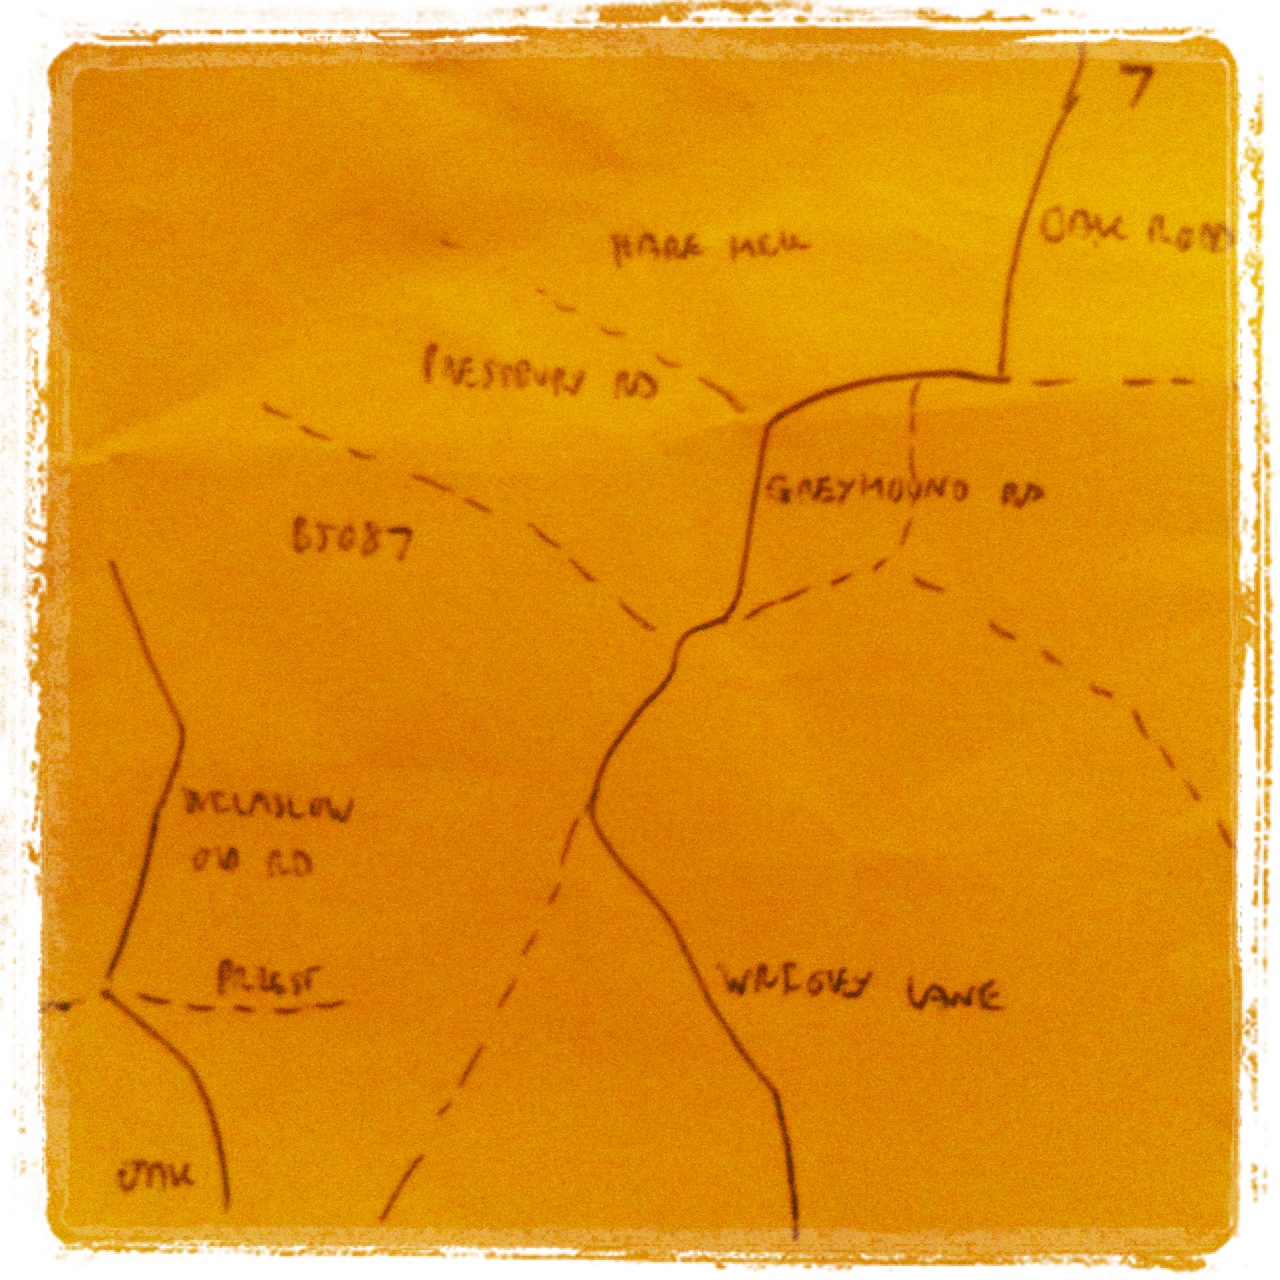 7
OAK ROAD
HARE HILL
PRESTBURY RD
GREYHOUND RD
B5087
WILMSLOW
OLD RD
PRIEST
WRIGLEY LANE
OAK